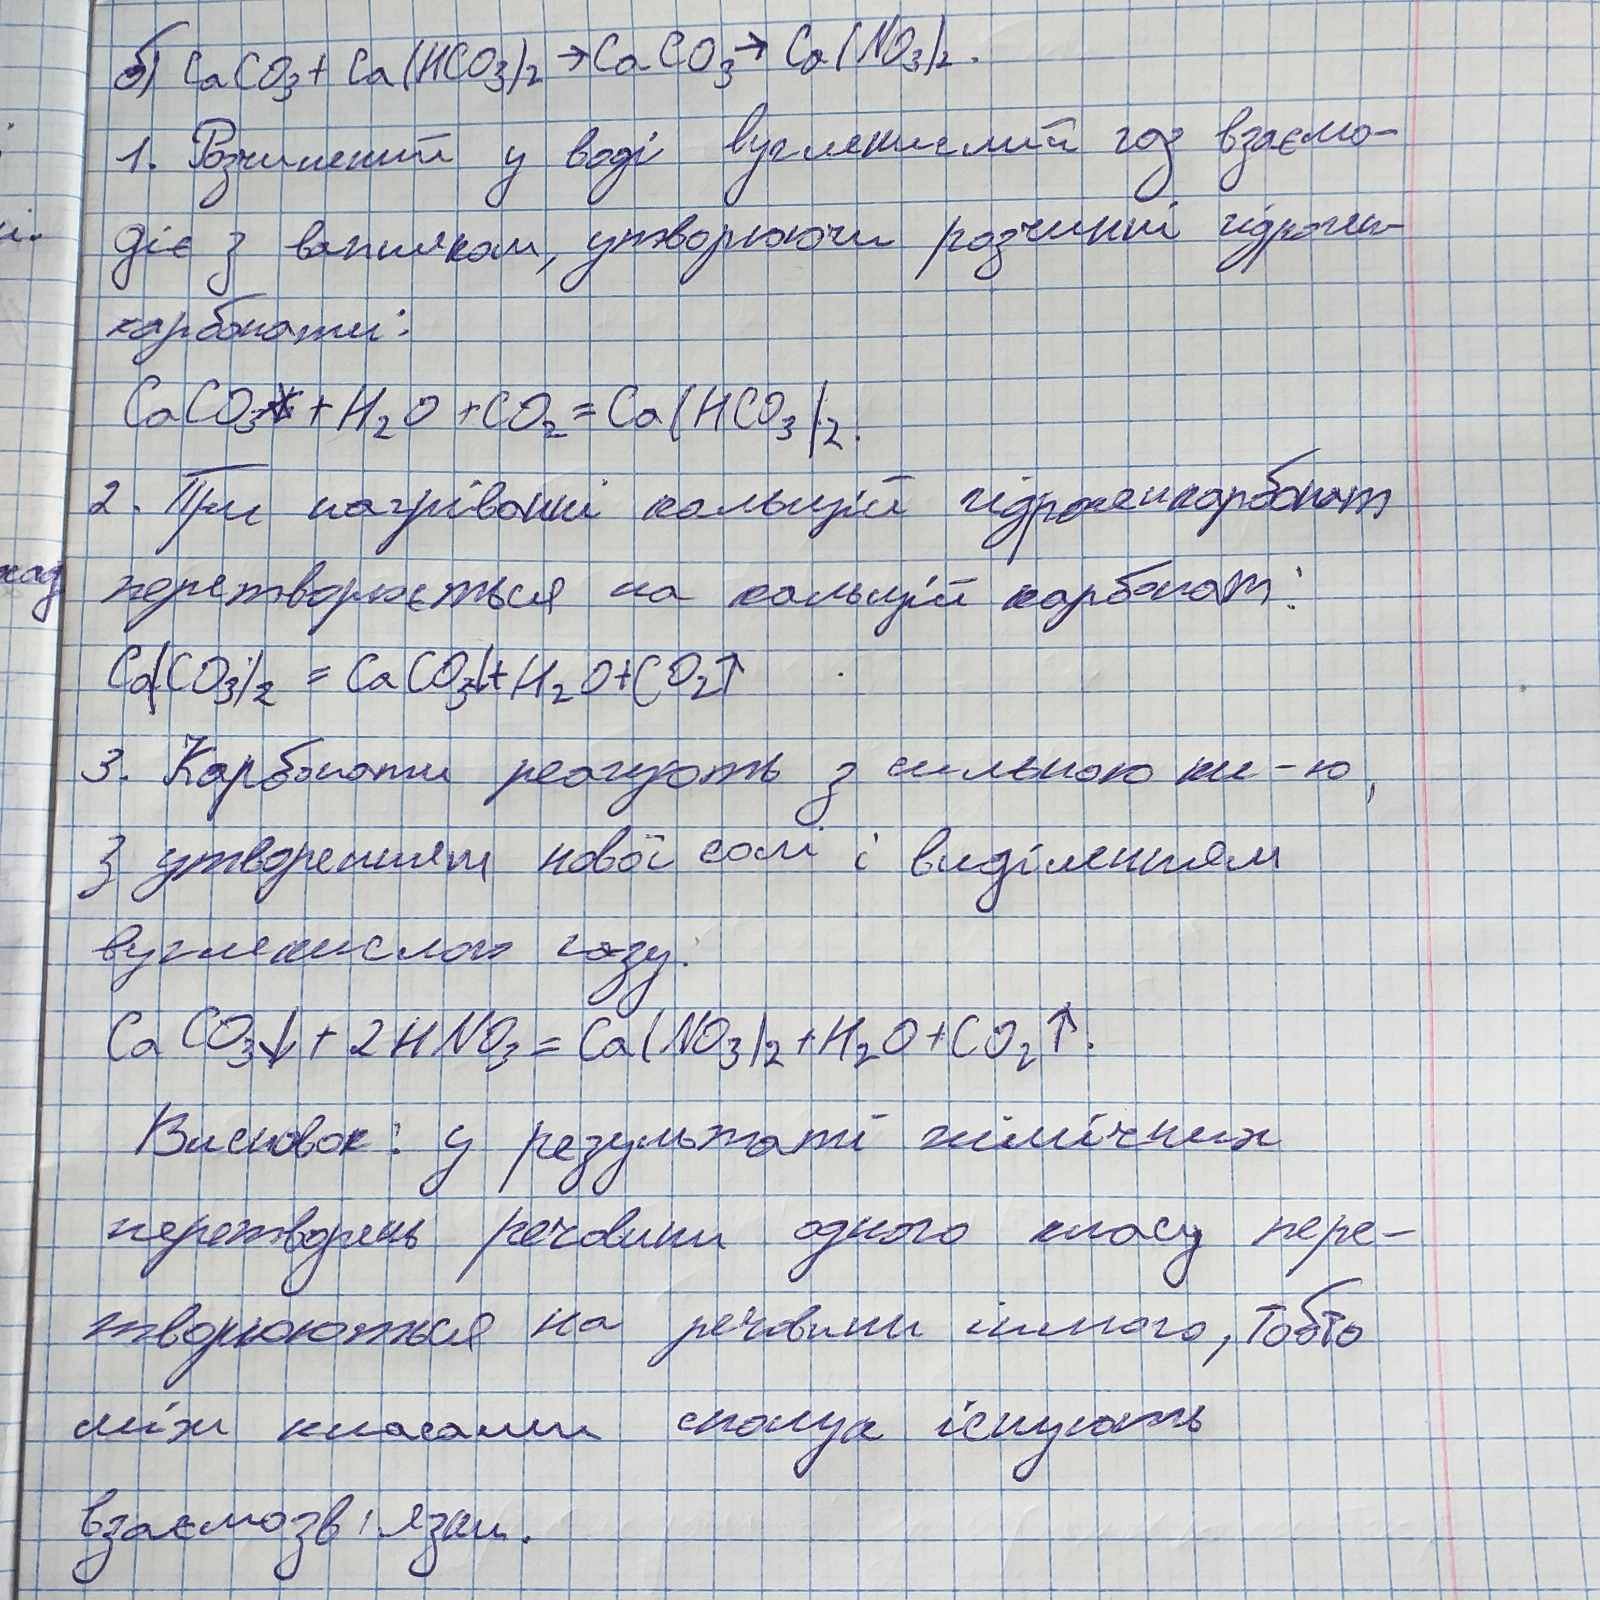 б) CaCO₃ + Ca(HCO₃)₂ → CaCO₃ → Ca(NO₃)₂.
1. Розчинений у воді вуглекислий газ взаємо-
діє з вапняком, утворюючи розчинні гідроген-
карбонати:
CaCO₃ + H₂O + CO₂ = Ca(HCO₃)₂.
2. При нагріванні кальцій гідрогенкарбонат
перетворюється на кальцій карбонат:
Ca(CO₃)₂ = CaCO₃↓ + H₂O + CO₂↑
3. Карбонати реагують з сильною ки-ю,
з утворенням нової солі і виділенням
вуглекислого газу.
CaCO₃↓ + 2HNO₃ = Ca(NO₃)₂ + H₂O + CO₂↑.
Висновок: у результаті хімічних
перетворень речовини одного класу пере-
творюються на речовини іншого, тобто
між класами сполук існують
взаємозв'язки.